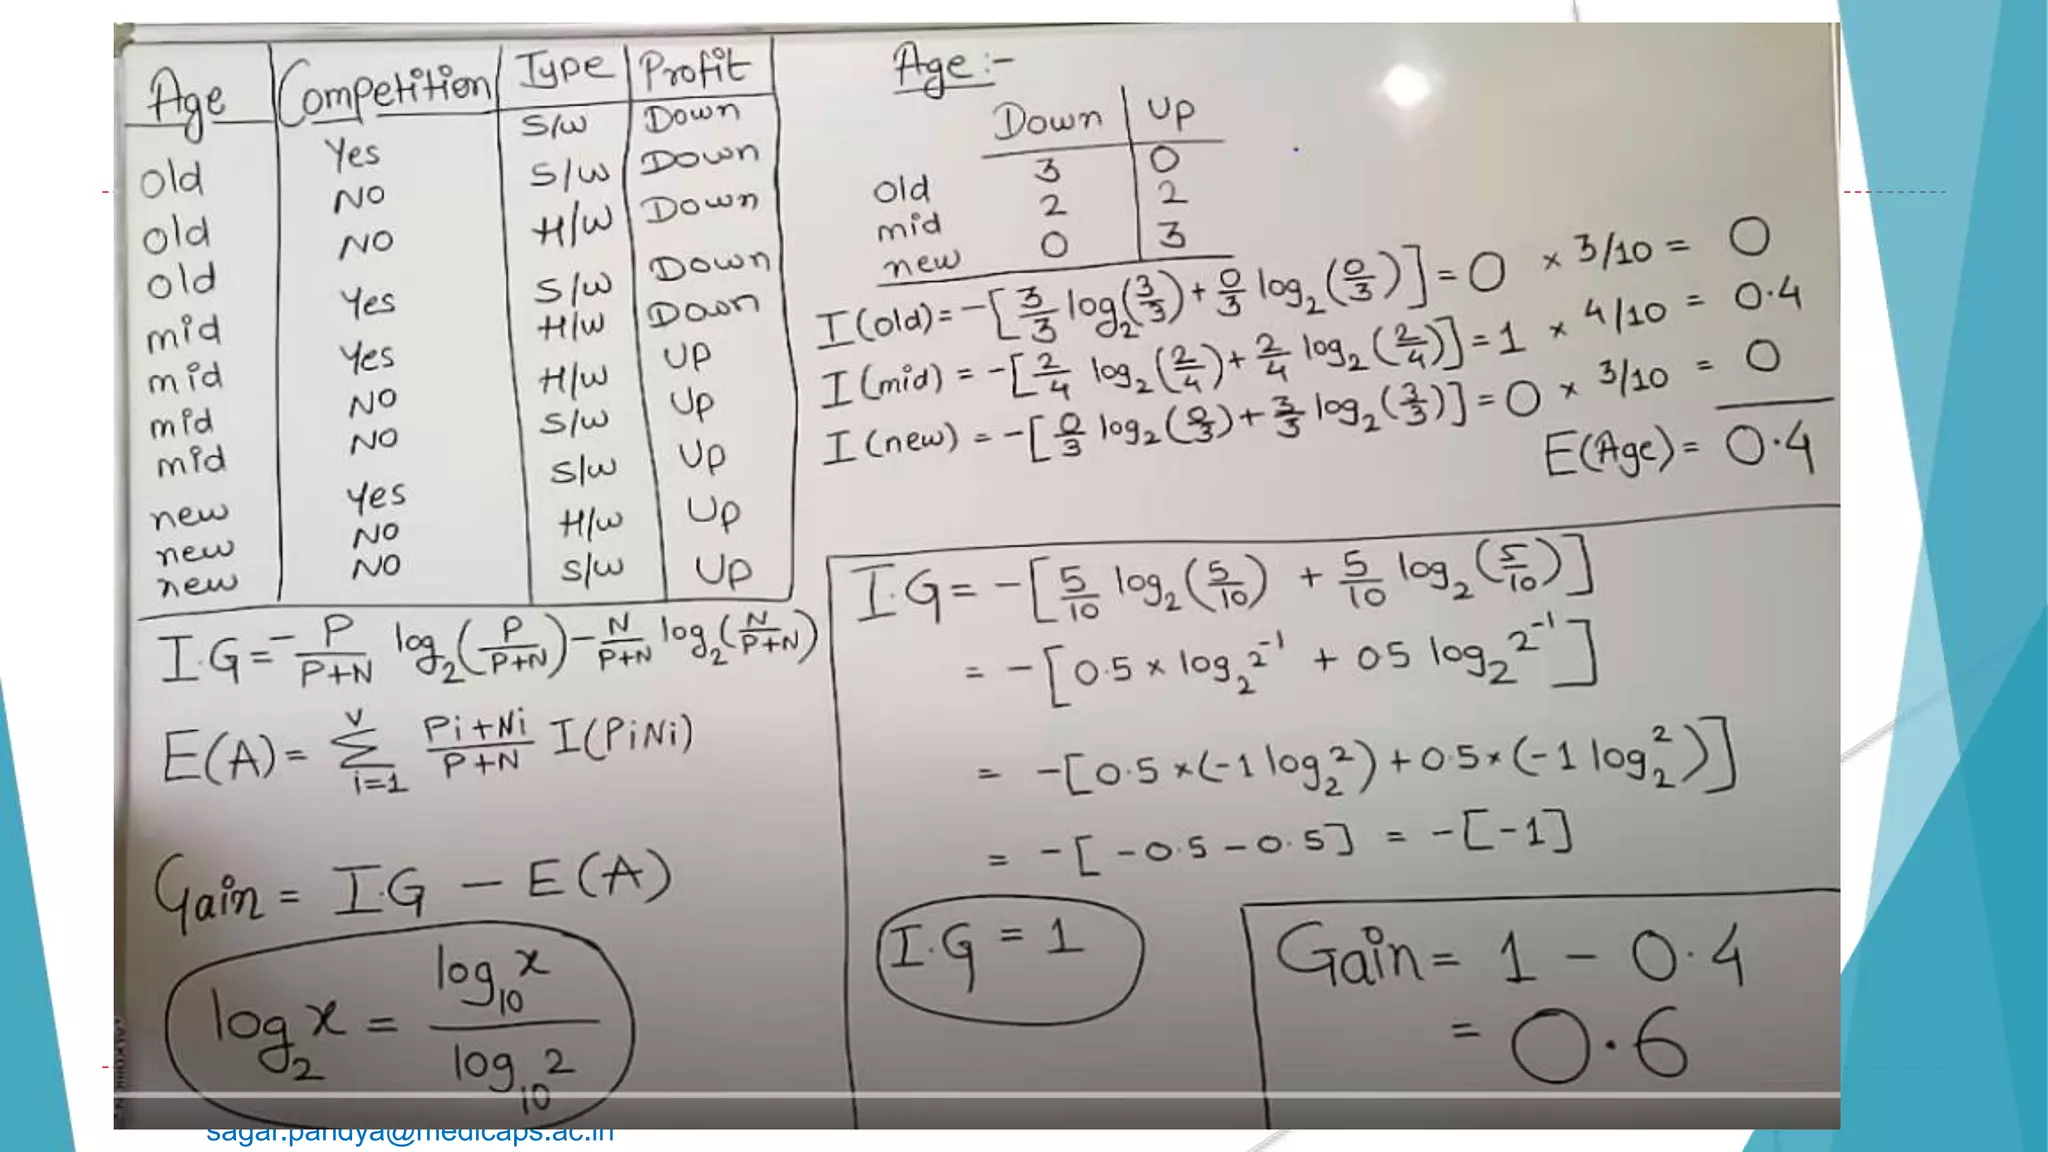 Age | Competition | Type | Profit
old | Yes | S/W | Down
old | NO | S/W | Down
old | NO | H/W | Down
mid | Yes | S/W | Down
mid | Yes | H/W | Down
mid | NO | H/W | UP
mid | NO | S/W | Up
new | Yes | S/W | Up
new | NO | H/W | Up
new | NO | S/W | Up
I.G = - P/P+N log₂(P/P+N) - N/P+N log₂(N/P+N)
E(A) = Σ i=1 v Pi+Ni/P+N I(PiNi)
Gain = I.G - E(A)
log₂x = log₁₀x / log₁₀2
Age :-
Down | UP
old 3 | 0
mid 2 | 2
new 0 | 3
I(old) = -[3/3 log₂(3/3) + 0/3 log₂(0/3)] = 0 × 3/10 = 0
I(mid) = -[2/4 log₂(2/4) + 2/4 log₂(2/4)] = 1 × 4/10 = 0.4
I(new) = -[0/3 log₂(0/3) + 3/3 log₂(3/3)] = 0 × 3/10 = 0
E(Age) = 0.4
I.G = -[5/10 log₂(5/10) + 5/10 log₂(5/10)]
= -[0.5 × log₂2⁻¹ + 05 log₂2⁻¹]
= -[0.5 × (-1 log₂2) + 0.5 × (-1 log₂2)]
= -[-0.5 - 0.5] = -[-1]
I.G = 1
Gain = 1 - 0.4
= 0.6
sagar.pandya@medicaps.ac.in